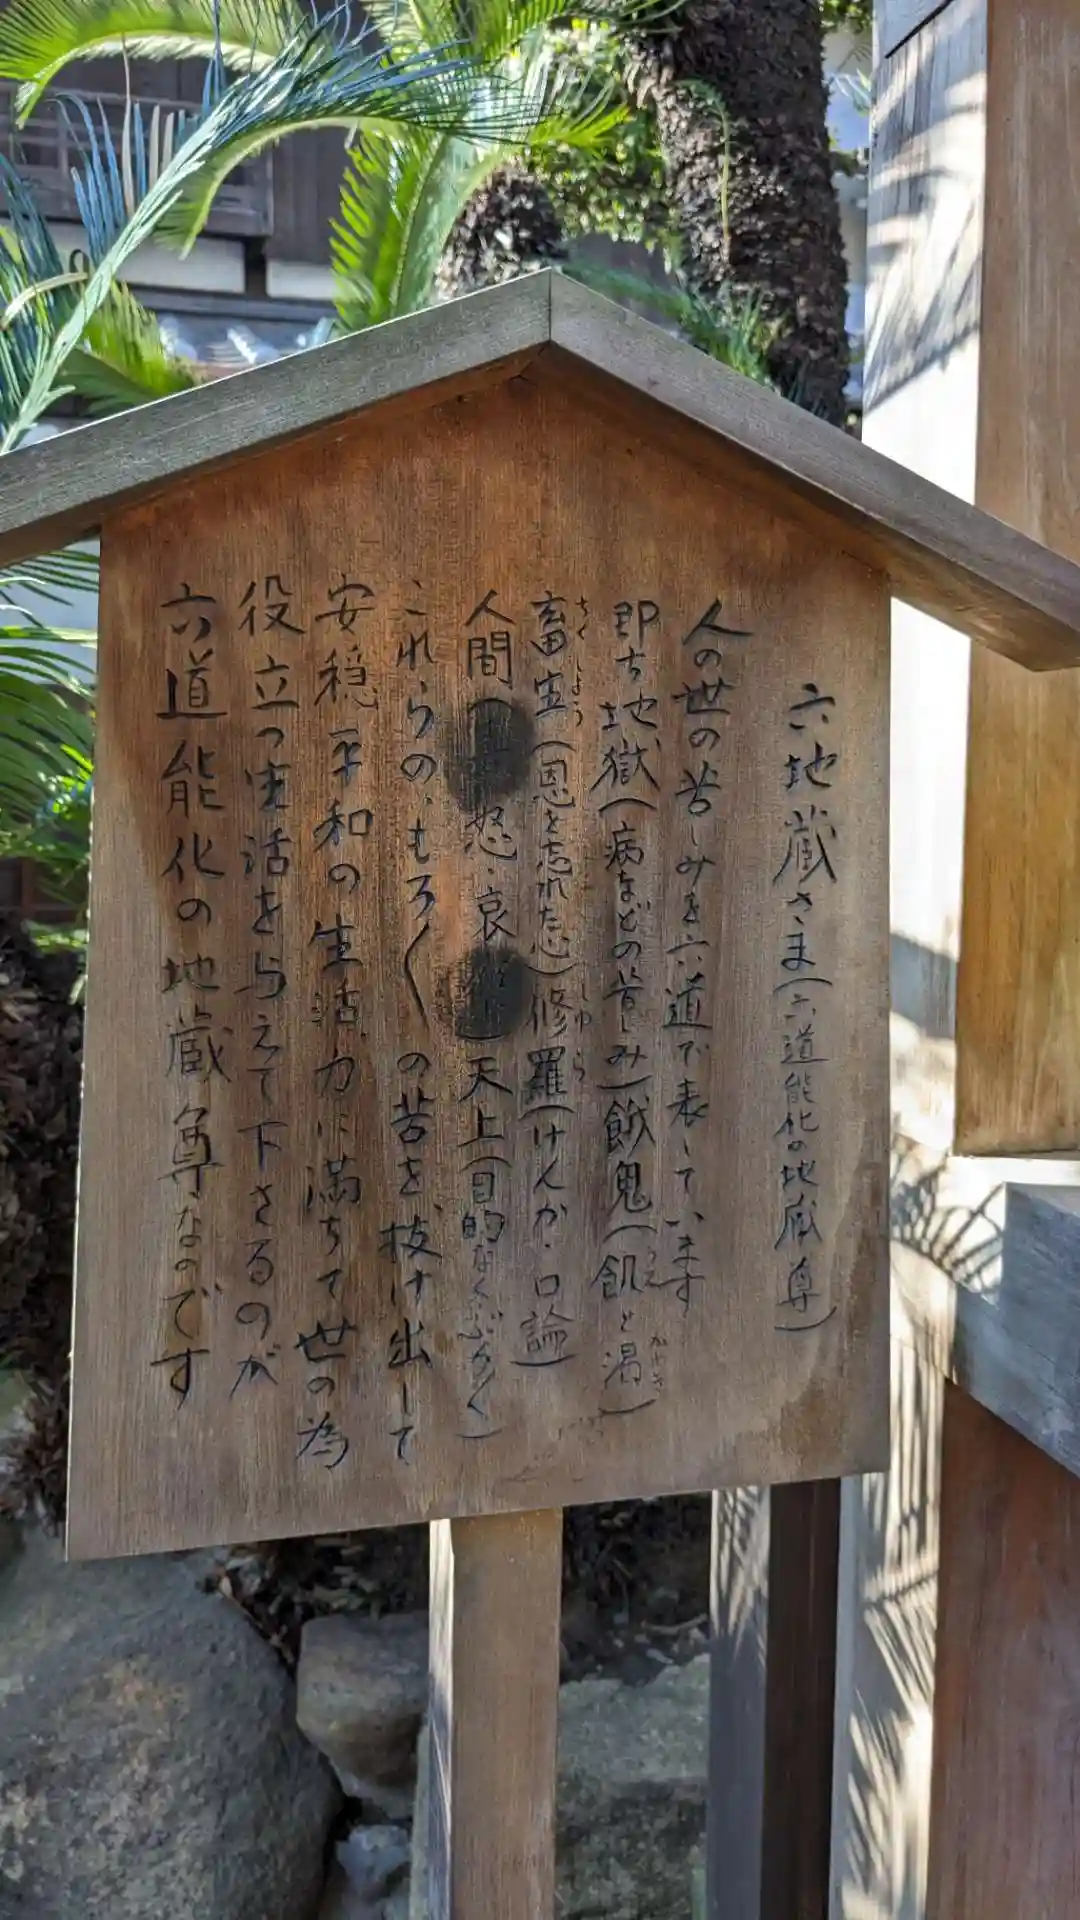 六地蔵さま(六道能化の地蔵尊)
人の世の苦しみを六道で表しています
即ち地獄(病などの苦しみ)餓鬼(飢えと渇)
畜生(恩を忘れた心)修羅(けんか・口論)
人間(怒・哀)天上(目的なくぶらぶら)
これらの、もろ〱の苦を、抜け出して
安穏平和の生活力に満ちて世の為
役立つ生活を与えて下さるのが
六道能化の地蔵尊なのです